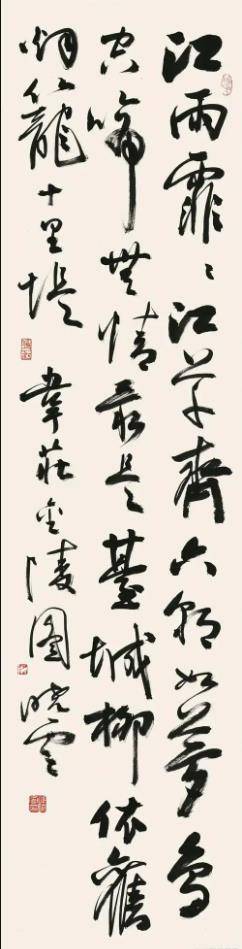 江雨霏〻江草齊六朝如夢鳥
空啼無情最是臺城柳依舊
烟籠十里堤 韋莊金陵圖 曉雲